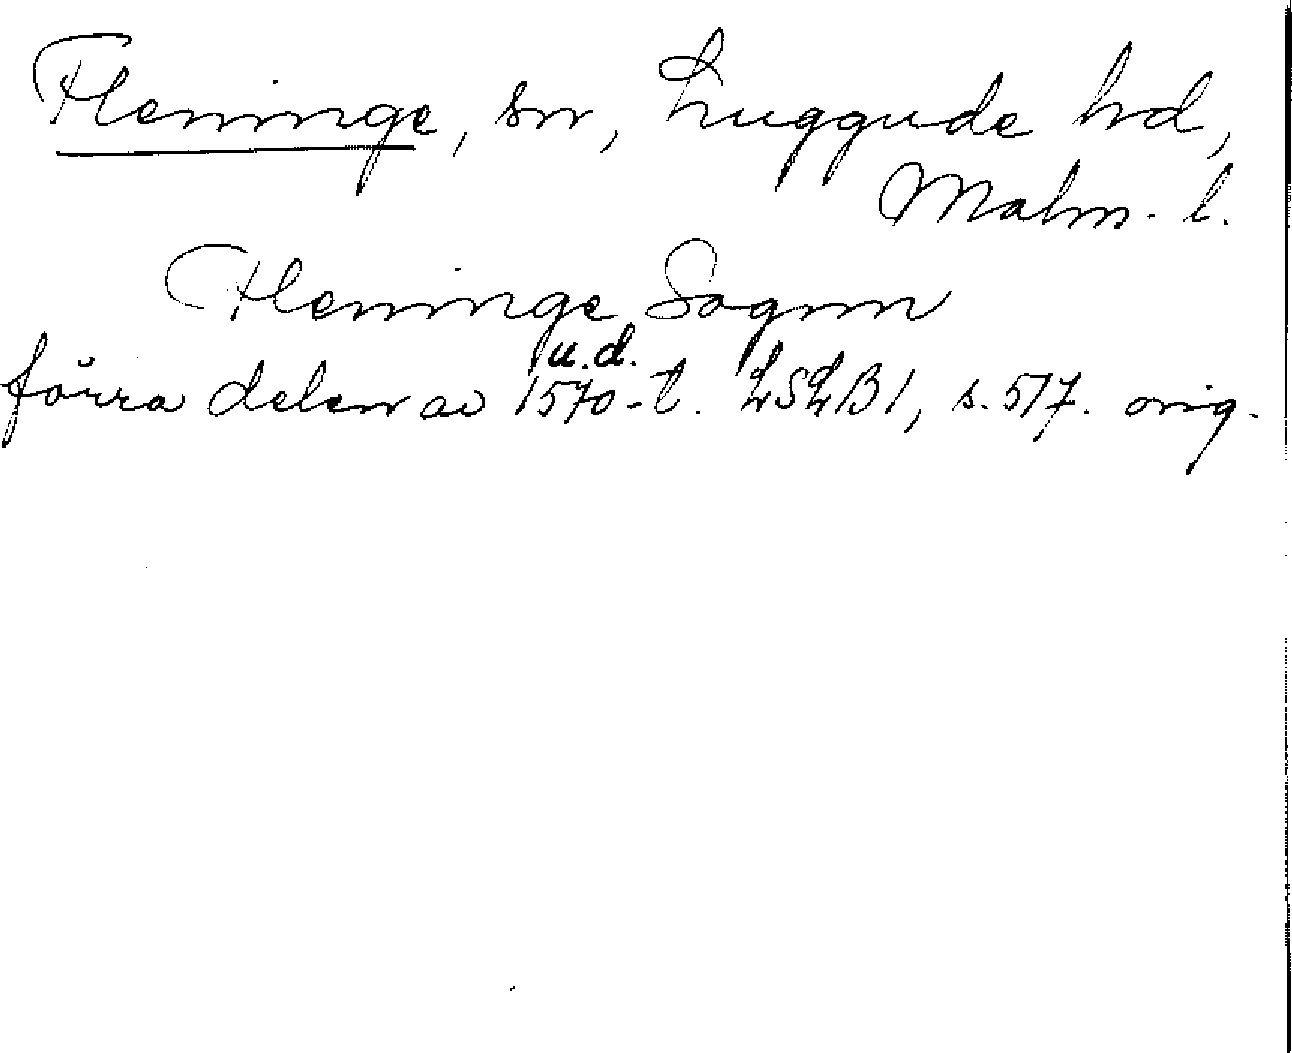 Fleninge, sn, Luggude hd,
Malm. l.
Fleninge Sognn
u.d.
förra delen av 1570-t. LSLB1, s. 517. orig.